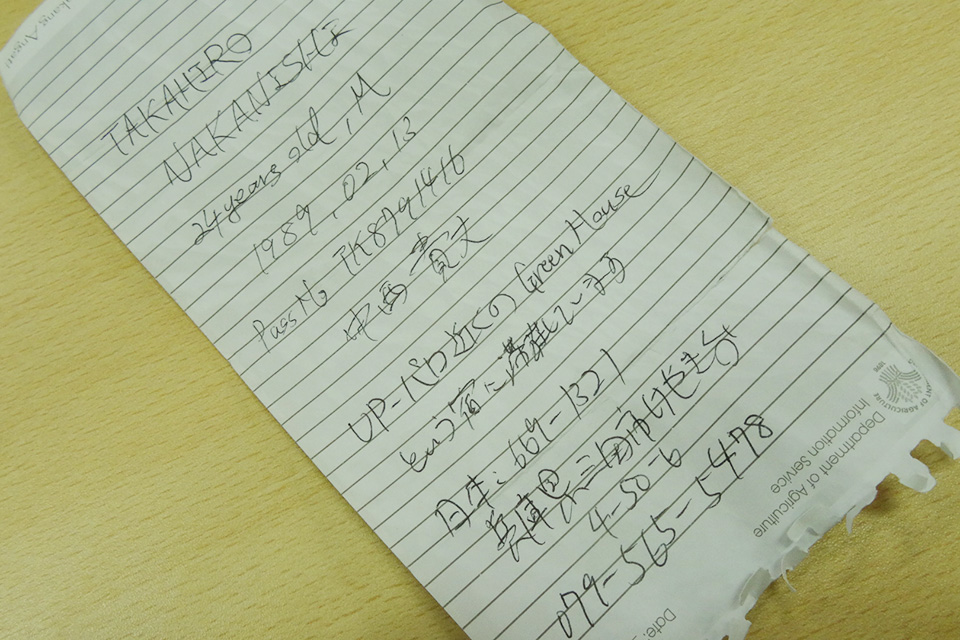 TAKAHIRO
NAKANISHI
24 years old, M
1989, 02, 13
Pass No TK8794416
中西 貴大
UP-ベロ近くの Green House
という宿に滞在しています
日本: 669-1321
兵庫県三田市けやき台
4-50-6
079-565-5478
Department of Agriculture
Information Service
Date: